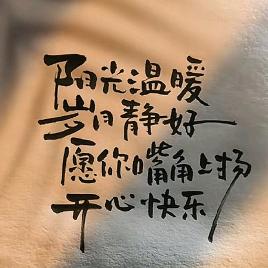 阳光温暖
岁月静好
愿你嘴角上扬
开心快乐